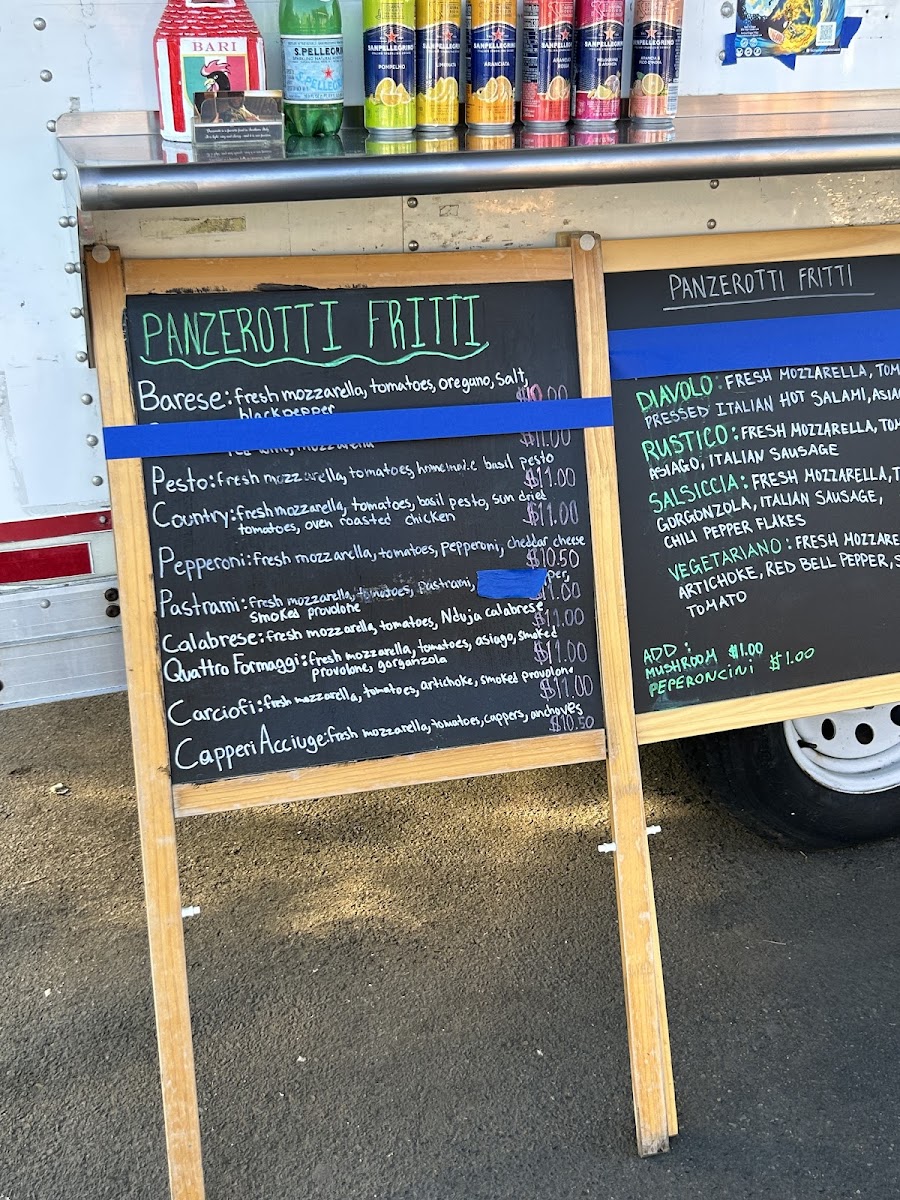 BARI
S.PELLEGRINO
SANPELLEGRINO
POMPELMO
SANPELLEGRINO
LIMONATA
SANPELLEGRINO
ARANCIATA
SANPELLEGRINO
SANPELLEGRINO
SANPELLEGRINO
PANZEROTTI FRITTI
Barese: fresh mozzarella, tomatoes, oregano, salt,
black pepper
$11.00
Pesto: fresh mozzarella, tomatoes, homemade basil pesto
$11.00
Country: fresh mozzarella, tomatoes, basil pesto, sun dried
tomatoes, oven roasted chicken $11.00
Pepperoni: fresh mozzarella, tomatoes, pepperoni, cheddar cheese
$10.50
Pastrami: fresh mozzarella, tomatoes, Pastrami,
smoked provolone
Calabrese: fresh mozzarella, tomatoes, Nduja calabrese
$11.00
Quattro Formaggi: fresh mozzarella, tomatoes, asiago, smoked
provolone, gorganzola $11.00
Carciofi: fresh mozzarella, tomatoes, artichoke, smoked provolone
$11.00
Capperi Acciuge: fresh mozzarella, tomatoes, cappers, anchoves
$10.50
PANZEROTTI FRITTI
DIAVOLO: FRESH MOZZARELLA, TOM
PRESSED ITALIAN HOT SALAMI, ASIA
RUSTICO: FRESH MOZZARELLA, TOM
ASIAGO, ITALIAN SAUSAGE
SALSICCIA: FRESH MOZZARELLA, T
GORGONZOLA, ITALIAN SAUSAGE,
CHILI PEPPER FLAKES
VEGETARIANO: FRESH MOZZARE
ARTICHOKE, RED BELL PEPPER, S
TOMATO
ADD:
MUSHROOM $1.00
PEPERONCINI $1.00